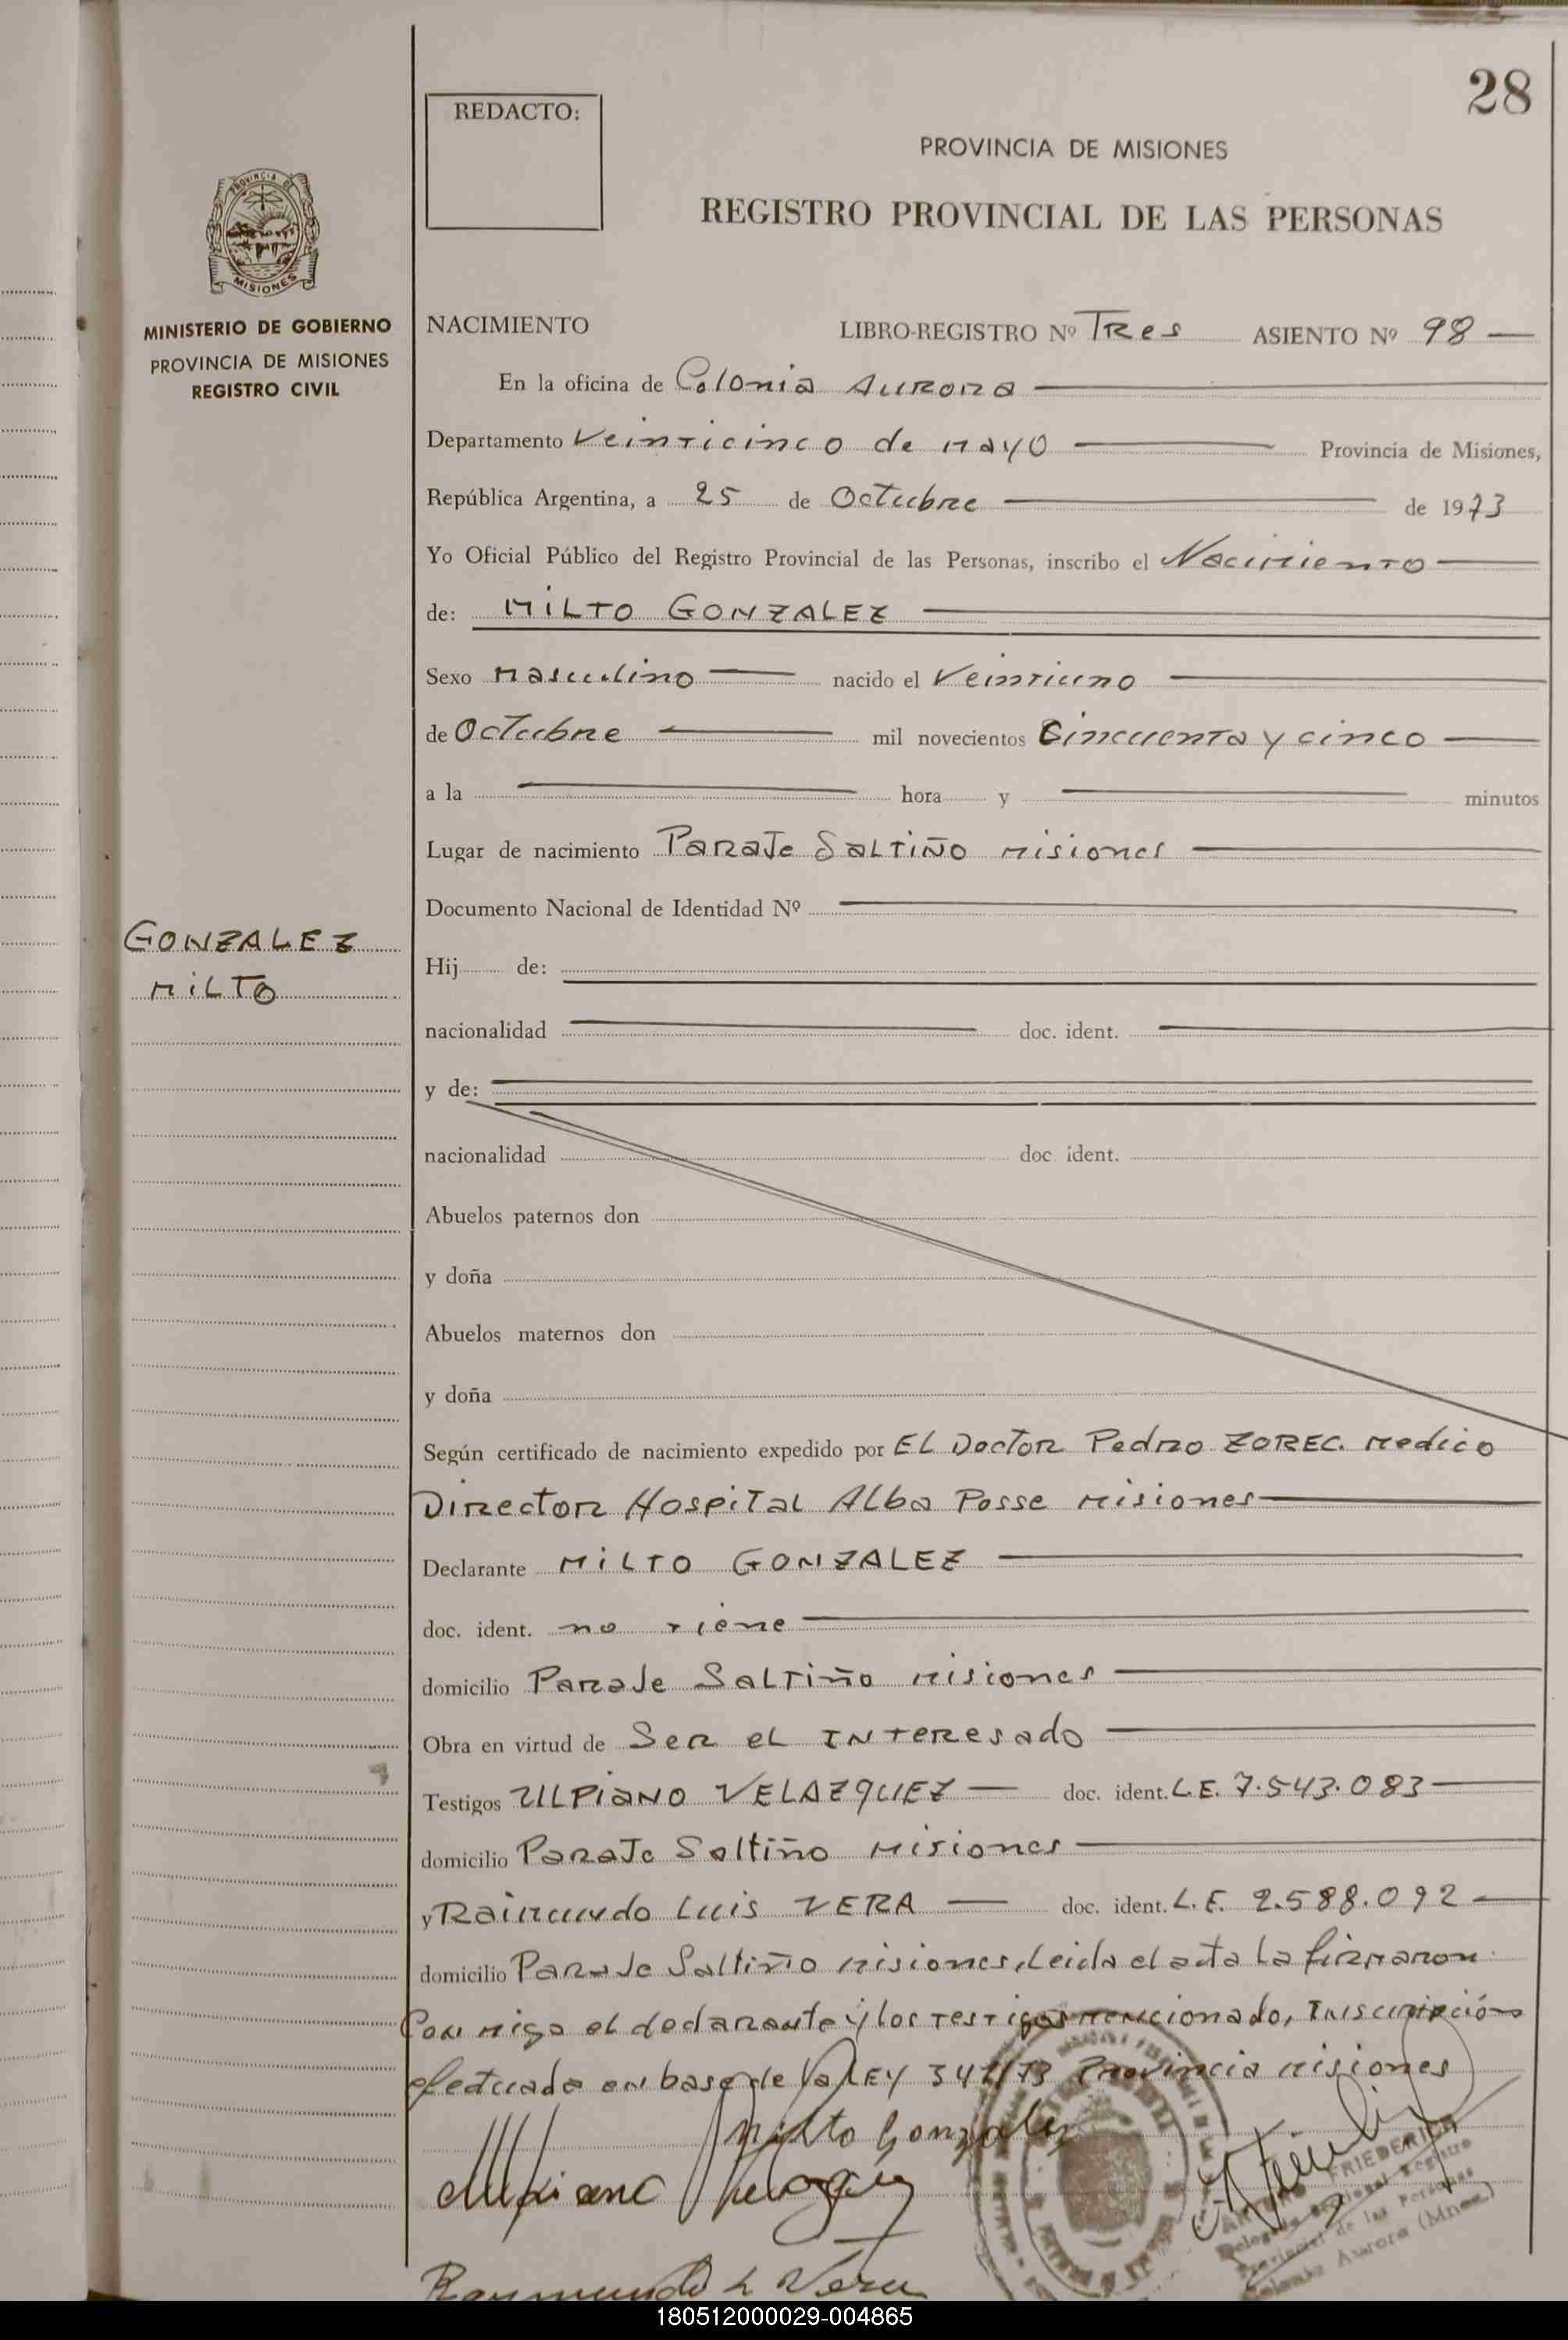 28
REDACTO:
PROVINCIA DE MISIONES
REGISTRO PROVINCIAL DE LAS PERSONAS
PROVINCIA DE
MISIONES
MINISTERIO DE GOBIERNO
PROVINCIA DE MISIONES
REGISTRO CIVIL
NACIMIENTO LIBRO-REGISTRO Nº Tres ASIENTO Nº 98
En la oficina de Colonia Aurora
Departamento Veinticinco de Mayo Provincia de Misiones,
República Argentina, a 25 de Octubre de 1973
Yo Oficial Público del Registro Provincial de las Personas, inscribo el Nacimiento
de: MILTO GONZALEZ
Sexo Masculino nacido el Veintiuno
de Octubre mil novecientos Cincuenta y cinco
a la hora y minutos
Lugar de nacimiento Paraje Saltiño Misiones
Documento Nacional de Identidad Nº
GONZALEZ
MILTO
Hij de:
nacionalidad doc. ident.
y de:
nacionalidad doc ident.
Abuelos paternos don
y doña
Abuelos maternos don
y doña
Según certificado de nacimiento expedido por El Doctor Pedro ZOREC. Medico
Director Hospital Alba Posse Misiones
Declarante MILTO GONZALEZ
doc. ident. no tiene
domicilio Paraje Saltiño Misiones
Obra en virtud de Ser el Interesado
Testigos ULPIANO VELAZQUEZ doc. ident. L.E. 7.543.083
domicilio Paraje Saltiño Misiones
y Raimundo Luis VERA doc. ident. L.E. 2.588.092
domicilio Paraje Saltiño Misiones, Leida el acta la firmaron
Con migo el declarante y los testigos mencionado, Inscripción
efectuada en base de la LEY 341/73 Provincia Misiones
Milto Gonzalez
FRIEDERICH
Delegado Seccional Registro
Provincial de las Personas
Colonia Aurora (Mnes.)
Raymundo L Vera
180512000029-004865